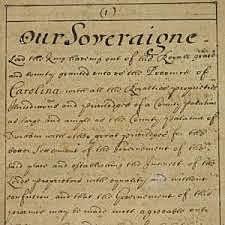 (1)
Our Soveraigne
Lord the King haveing out of his Royall grace
and bounty granted unto us the Province of
Carolina with all the Royalties proprieties
Jurisdictions and priviledges of a County Palatine
as large and ample as the County Palatine of
Durham with other great priviledges for the
better Settlement of the Government of the
said place and establishing the Interest of the
Lords proprietors with equality and without
confusion and that the Government of this
province may be made most agreeable unto